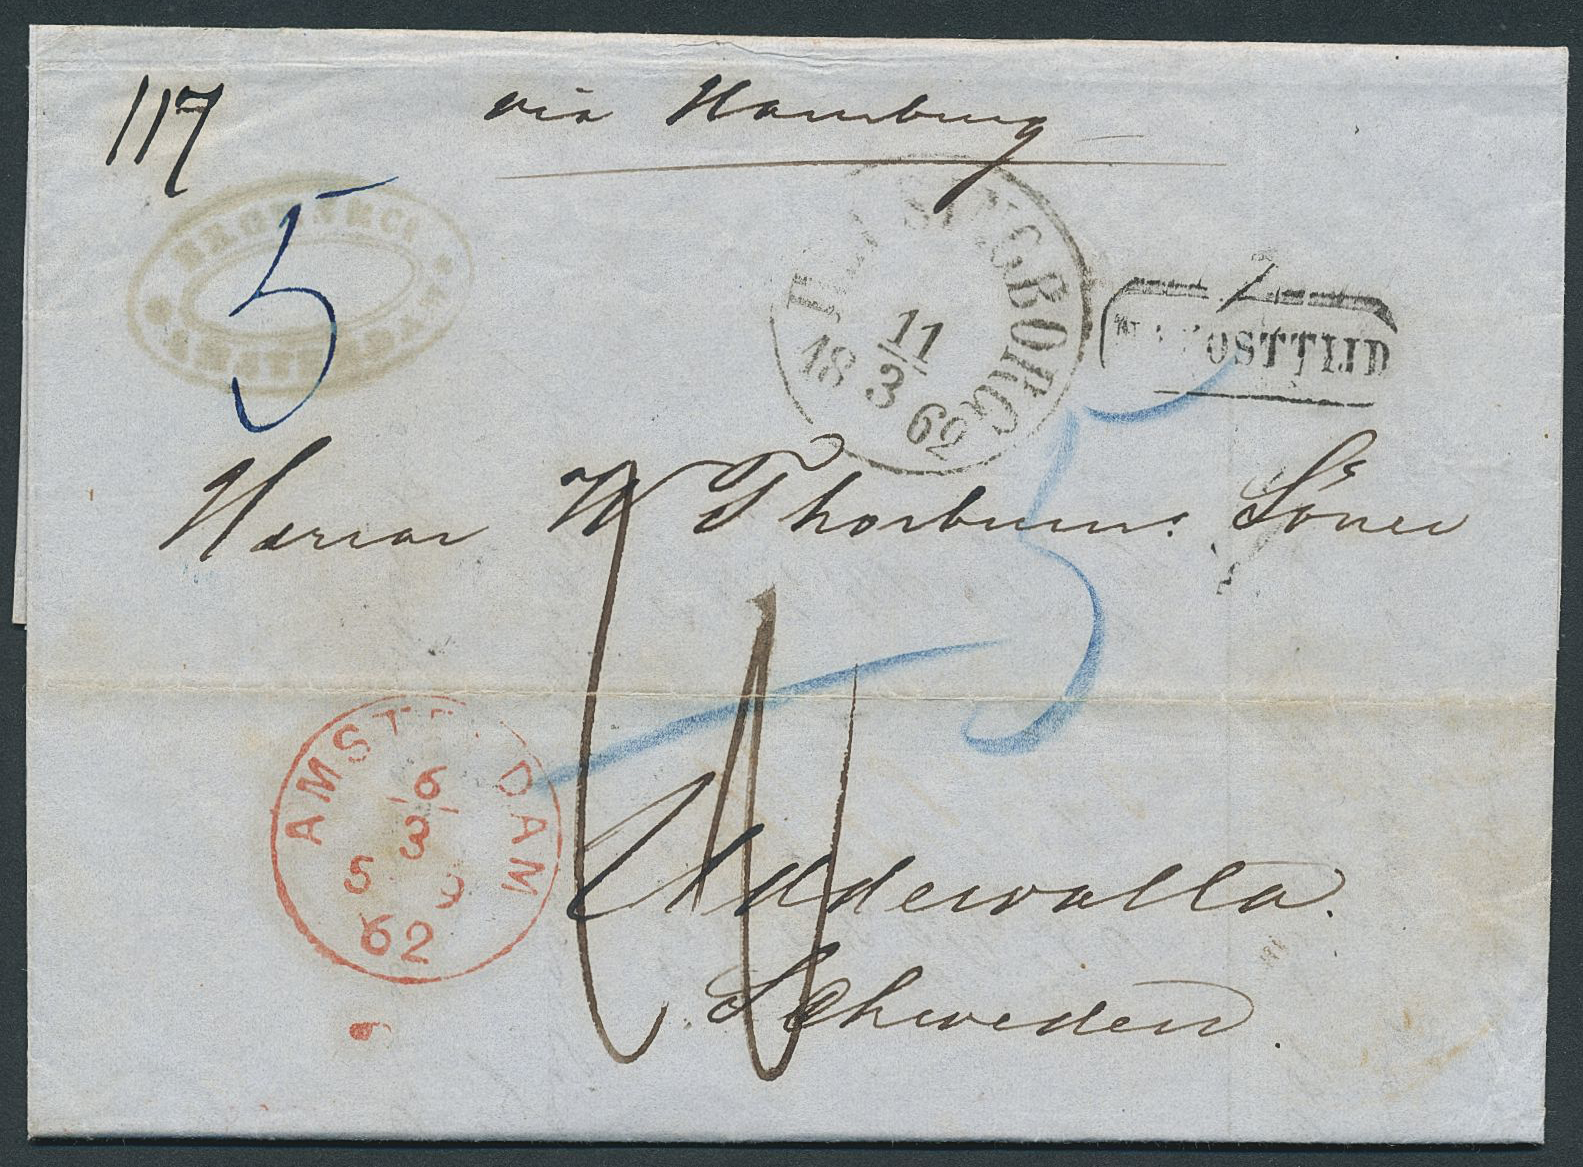 117 via Hamburg
5
AMSTERDAM
HELSINGBORG
11
3
18 62
NA POSTTIJD
5
Herrar W Thorburns Söner
AMSTERDAM
6
3
5
62
Uddewalla.
Schweden.